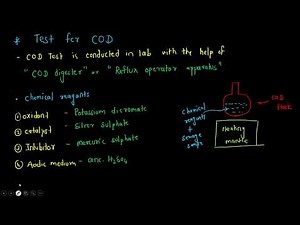 * Test for COD
- COD Test is conducted in lab with the help of
"COD digester" or "Reflux operator apparatus"
• chemical reagents
① oxidant - Potassium dicromate
② catalyst - Silver sulphate
③ Inhibitor - mercuric sulphate
④ Acidic medium - conc. H₂SO₄
chemical
reagents
+
sewage
sample
COD
flask
Heating
mantle